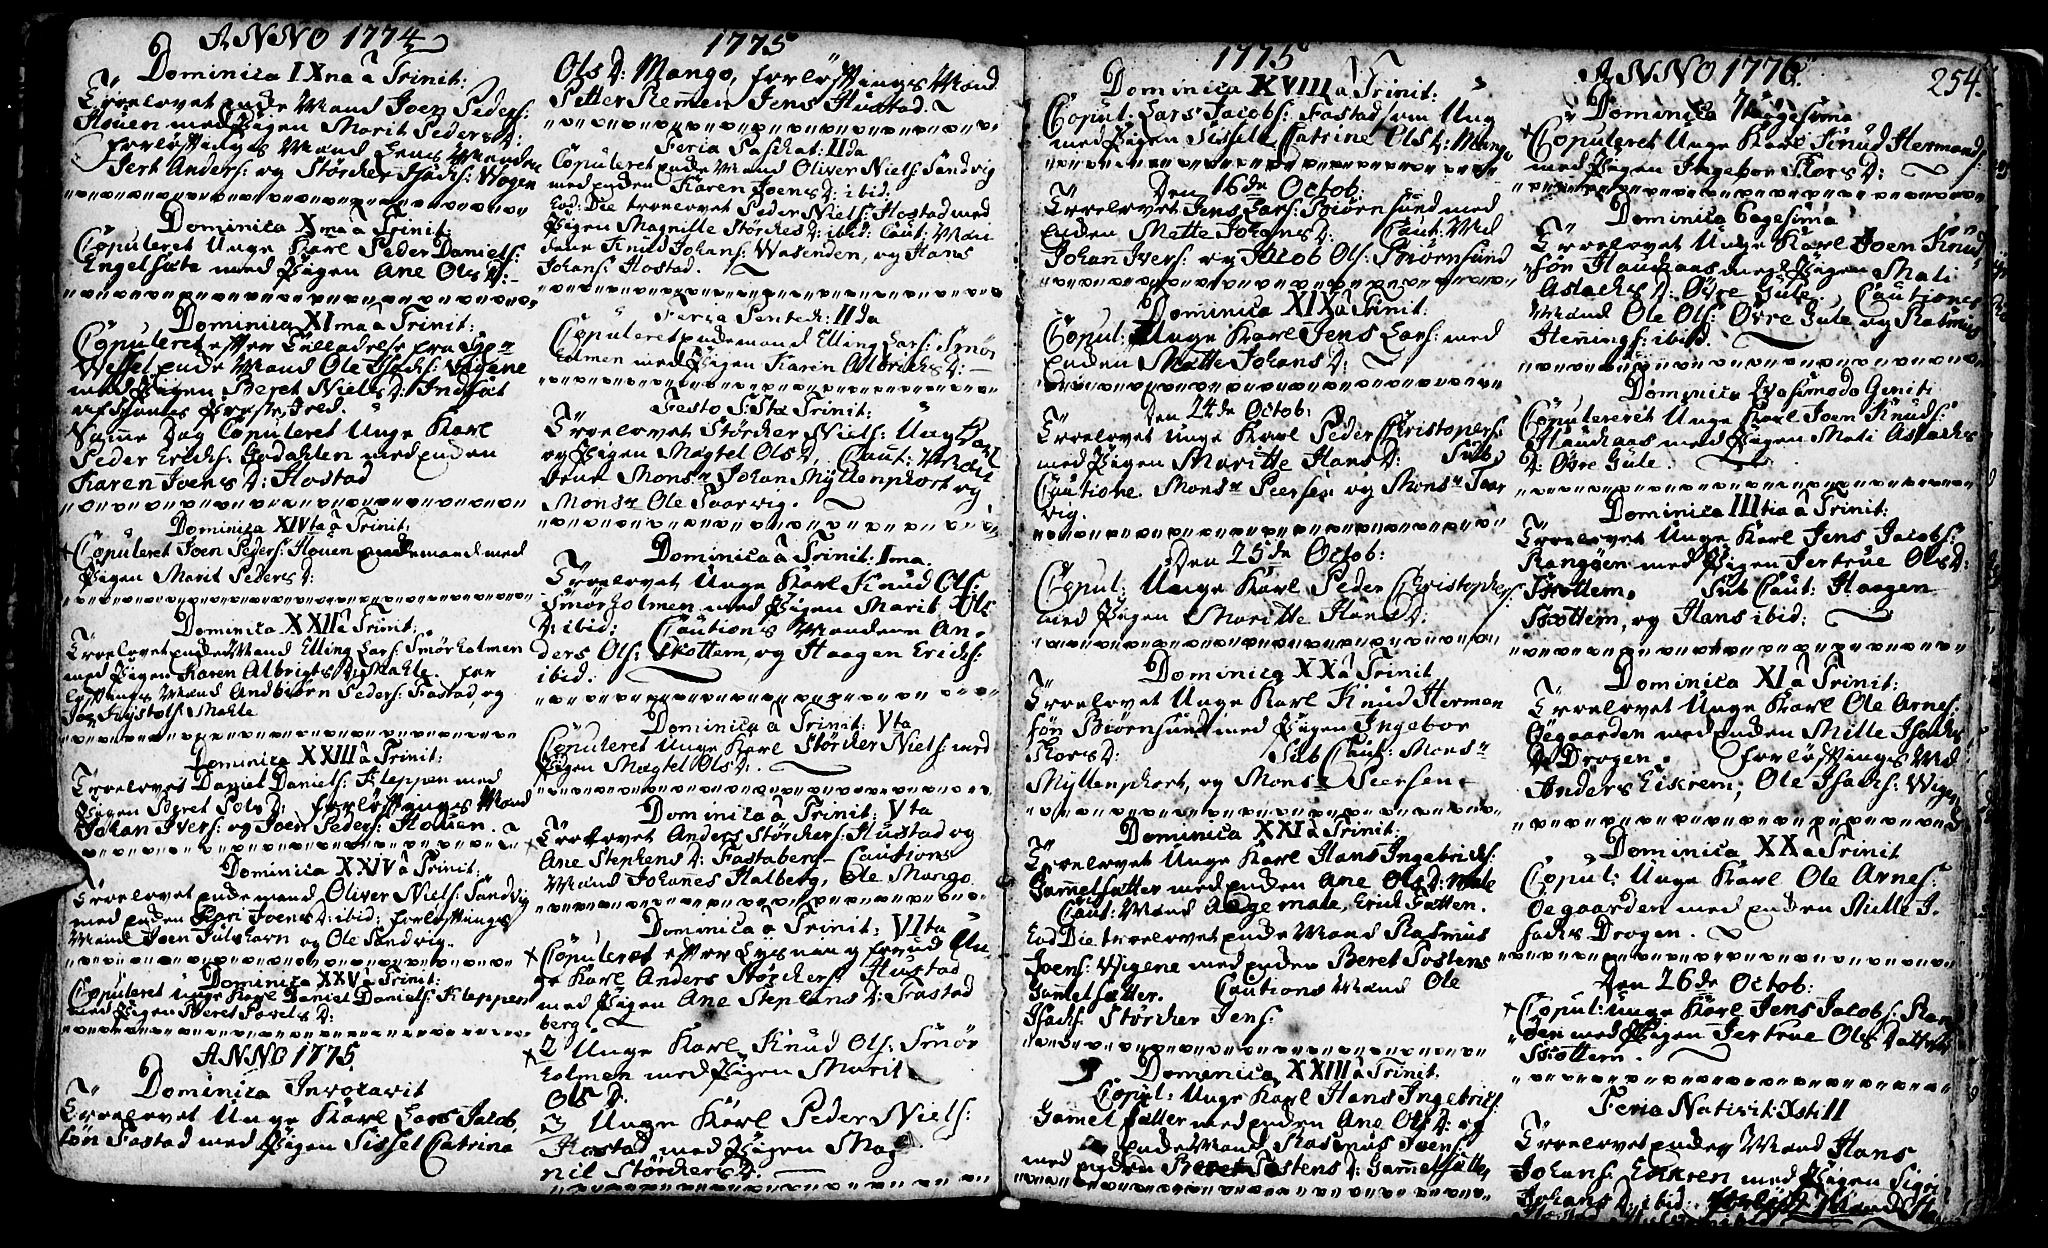 ANNO 1774
Dominica IXna â Trinit:
Troelovet Enke Mand Joen Peders:
Houen med Pigen Marit Peders D:
forløftnings Mænd Jens
Jert Anders: og Størcker Isachs: Wogen
Dominica Xma â Trinit:
Copuleret Unge Karl Peder Daniels:
Engelsæta med Pigen Ane Ols D:
Dominica XIma â Trinit:
Copuleret efter Tilladelse fra Hr
Wessel Enke Mand Ole Isachs: Wigene
med Pigen Beret Niels D: Indsæt
af Præste Ired.
Samme Dag Copuleret Unge Karl
Peder Erichs: Godahlen med Enken
Karen Joens D: Hostad
Dominica XIVta â Trinit:
Copuleret Joen Peders: Houen Enkemand med
Pigen Marit Peders D:
Dominica XXII â Trinit:
Troelovet Enke Mand Elling Lars: Smörholmen
med Pigen Karen Albrigts D: Mahle. for
løftnings Mænd Andbiørn Peders: Fastad, og
Joe Mahle
Dominica XXIII â Trinit:
Troelovet Daniel Daniels: Kleppen med
Pigen Beret Pols D: forløftnings Mænd
Johan Ivers: og Joen Peders: Houen.
Dominica XXIV â Trinit:
Troelovet Enkemand Oliver Niels: Sandvig
med Enken Kari Joens D: ibid: forløftnings
Mænd Joen Julshavn og Ole Sandvig.
Dominica XXV â Trinit:
Copuleret Unge Karl Daniel Daniels: Kleppen
med Pigen Beret Povels D:
ANNO 1775
Dominica Invocavit
Troelovet Unge Karl Lars Jacob
søn Fastad med Pigen Sissel Catrina
1775
Ols D: Mango, forløftnings Mænd
Petter Jens Hustad.
Feria Paschat: IIda
Copuleret Enke Mand Oliver Niels: Sandvig
med Enken Karen Joens D: ibid.
Eod: Die troelovet Peder Niels: Hostad med
Pigen Magnille Störchers D: ibid: Caut: Mæn
dene Knud Johans: Watenden, og Hans
Johans: Hostad.
Feria Pentec: IIda
Copuleret Enkemand Elling Lars: Smör
holmen med Pigen Karen Albrichs D:
Festo S:Stæ Trinit:
Troelovet Störcker Niels: Ung Karl
og Pigen Magtel Ols D, Caut: Mæn
dene Monsr Johan Myllenphort og
Monsr Ole Saarvig.
Dominica â Trinit: Ima.
Troelovet Unge Karl Knud Ols:
Smörholmen med Pigen Marit Ols
D: ibid: Cautions Mændene An-
ders Ols: Skottem, og Haagen Erichs:
ibid.
Dominica â Trinit: Vta
Copuleret Unge Karl Störcker Niels: med
Pigen Magtel Ols D:
Dominica â Trinit: Vta
Troelovet Anders Störchers: Hustad og
Ane Stephens D: Fastaberg Cautions
Mænd Johannes Halberg, Ole Mango
Dominica â Trinit: VIta
Copuleret efter Lysning Un-
ge Karl Anders Störchers: Hustad
med Pigen Ane Stephans D: Frastad
berg
2 Unge Karl Knud Ols: Smör
holmen med Pigen Marit
Ols D:
3 Unge Karl Peder Niels:
Hostad med Pigen Mag
nil Störchers D:
1775
Dominica XVIII â Trinit:
Copul: Lars Jacobs: Fastad Ung
med Pigen Sissele Catrine Ols D: Mango
Den 16de Octob:
Troelovet Jens Lars: Biörnsund med
Enken Mette Johans D: Caut: Md
Johan Ivers: og Jacob Ols: Biörnsund
Dominica XIX â Trinit:
Copul: Unge Karl Jens Lars: med
Enken Mette Johans D:
Den 24de Octob:
Troelovet Unge Karl Peder Christophers:
med Pigen Maritte Hans D: Sub
Cautione. Monsr Peersen og Monsr Saar
vig.
Den 25de Octob:
Copul: Unge Karl Peder Christophers:
med Pigen Maritte Hans D:
Dominica XX â Trinit
Troelovet Unge Karl Knud Herman
søn Biörnsund med Pigen Ingebor
Kors D: Sub Caut: Monsr
Myllenphort, og Monsr Peersen
Dominica XXI â Trinit:
Troelovet Unge Karl Hans Ingebricts:
Gammelsætter med Enken Ane Ols D: Male
Caut: Mænd Aage Male, Erick Sætten.
Eod Die troelovet Enke Mand Rasmus
Joens: Wigene med Enken Beret Tostens
Gammelsætter. Cautions Mænd Ole
Isachs: Störcker Jens:
Dominica XXIII â Trinit:
Copul: Unge Karl Hans Ingebricts:
Gamelsætter med Enken Ane Ols D: og
Enke Mand Rasmus Joens:
med Enken Beret Tostens D: Gammelsætter
ANNO 1776
254.
Dominica 7tuagesima
Copuleret Unge Karl Knud Hermands:
med Pigen Ingebor Kors D:
Dominica 6agesima
Troelovet Unge Karl Joen Knud
søn Haukaas med Pigen Mali
Aslachs D: Övre Gule. Cautions
Mænd Ole Ols: Övre Gule og Rasmus
Hennings: ibid.
Dominica Qvasimodo Genit:
Copulereret Unge Karl Joen Knuds:
Haukaas med Pigen Mali Aslachs
D: Övre Gule.
Dominica IIItia â Trinit:
Troelovet Unge Karl Jens Jacobs:
Rangöen med Pigen Jertrue Ols D:
Skottem. Sub Caut: Haagen
Skottem, og Hans ibid:
Dominica XI â Trinit:
Troelovet Unge Karl Ole Arnes:
Oegaarden med Enken Mille Isachs
D Drogen. forløftnings Md
Anders Eikrem; Ole Isachs: Wigen
Dominica XX â Trinit
Copul: Unge Karl Ole Arnes:
Oegaarden med Enken Mille I-
sachs Drogen.
Den 26de Octob:
Copul: Unge Karl Jens Jacobs: Ran
öen med Pigen Jertrue Ols Datter
Skottem.
Feria Nativit: Xsti II
Troelovet Enke Mand Hans
Johans: Eickren med Pigen Sigri
Johans D: ibid: